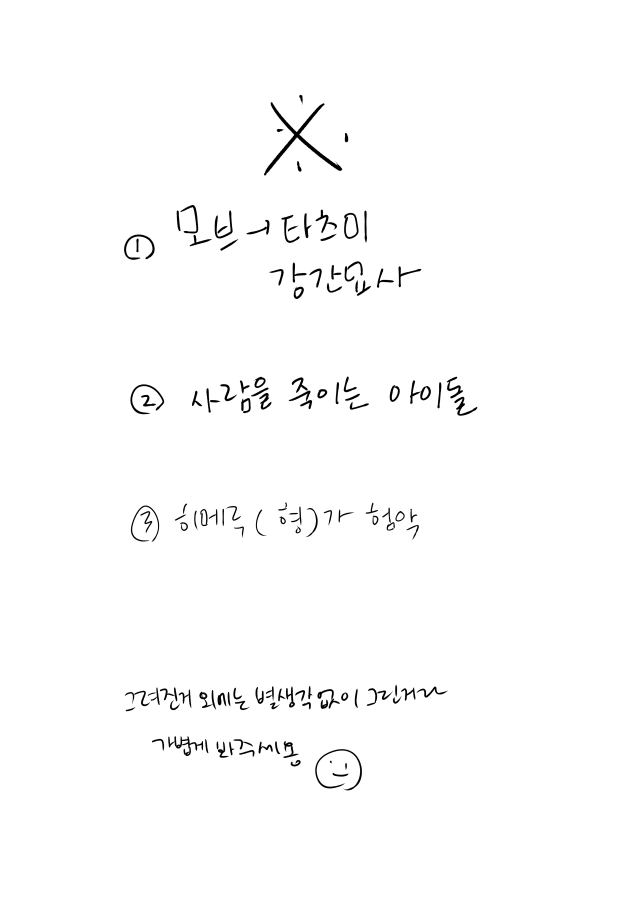 ※
① 모브→타츠미
강간묘사
② 사람을 죽이는 아이돌
③ 히메루(형)가 험악
그려진거 외에는 별생각없이 그린거라
가볍게 봐주세용